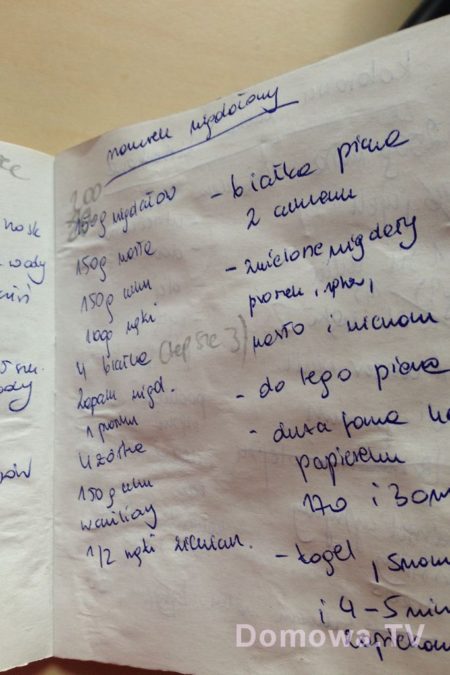 mazurek migdałowy
200
150g migdałów
150g masła
150g cukru
100g mąki
4 białka (lepsze 3)
Zapach migd.
1 proszek
4 żółtka
150g cukru
waniliowy
1/2 mąki ziemian.
- białka piana
z cukrem
- zmielone migdały
proszek,
masło i
- do tego piana
- duża forma
papierem
170 i 30m
- kogel,
i 4-5 min
wody
Domowa TV